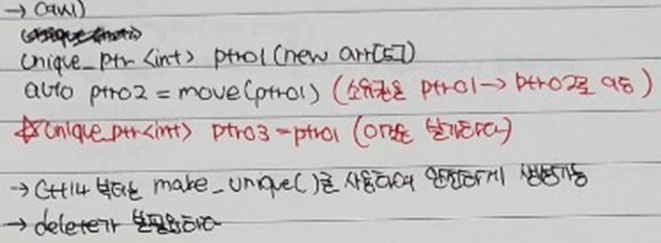 → C++11)
unique_ptr <int> ptr01 (new arr[5])
auto ptr02 = move(ptr01) (소유권을 ptr01 → ptr02로 이동)
☆ unique_ptr<int> ptr03 = ptr01 (이것은 불가하다)
→ C++14 부터는 make_unique()를 사용하여 안전하게 생성가능
→ delete가 불필요하다